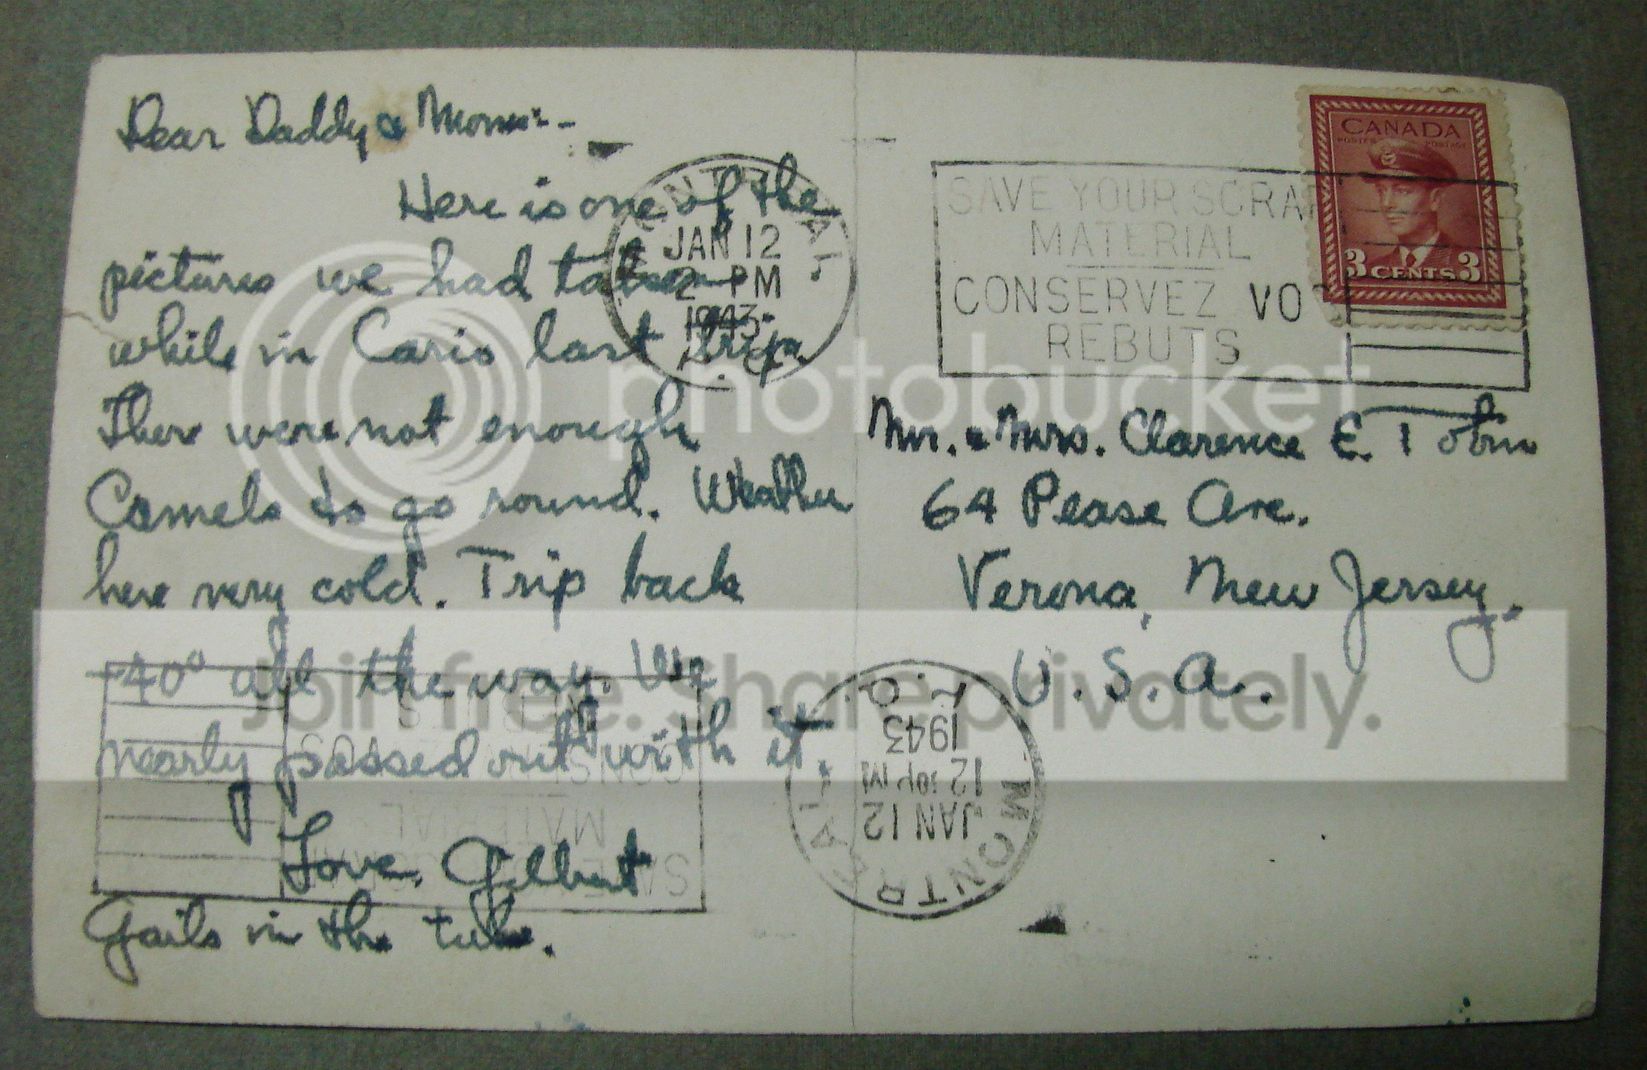 Dear Daddy & Mom:-
Here is one of the
pictures we had taken
while in Cario last trip.
There were not enough
Camels to go round. Weather
here very cold. Trip back
-40° all the way. We
nearly passed out with it.
Love, Gilbert
Gails in the tube.
MONTREAL
JAN 12
PM
1943
P.Q.
SAVE YOUR SCRAP
MATERIAL
CONSERVEZ VOS
REBUTS
CANADA
POSTES POSTAGE
3 CENTS 3
Mr. & Mrs. Clarence E. Tobin
64 Pease Ave.
Verona, New Jersey.
U.S.A.
MONTREAL
JAN 12
12 PM
1943
P.Q.
SAVE
MATERIAL
CONSERVEZ
REBUTS
photobucket
Join free. Share privately.